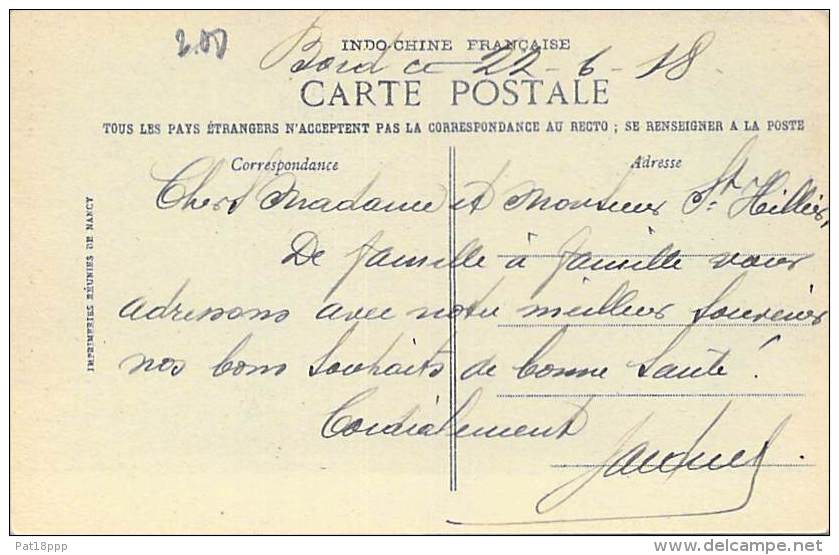 2.00
INDO-CHINE FRANÇAISE
Bord ce 22-6-18
CARTE POSTALE
TOUS LES PAYS ÉTRANGERS N'ACCEPTENT PAS LA CORRESPONDANCE AU RECTO ; SE RENSEIGNER A LA POSTE
Correspondance Adresse
Chers Madame et Monsieur St. Hillier,
De famille à famille vous
adressons avec notre meilleur souvenir
nos bons souhaits de bonne santé !
Cordialement
IMPRIMERIES RÉUNIES DE NANCY
Pat18ppp
delcampe.net